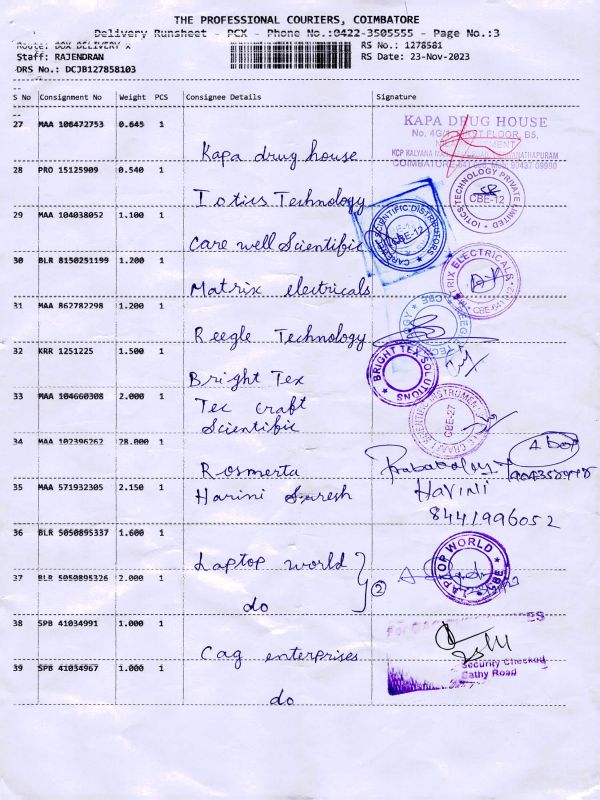 THE PROFESSIONAL COURIERS, COIMBATORE
Delivery Runsheet - PCX - Phone No.:0422-3505555 - Page No.:3
Route: BOX DELIVERY X RS No.: 1278581
Staff: RAJENDRAN RS Date: 23-Nov-2023
DRS No.: DCJB127858103
S No Consignment No Weight PCS Consignee Details Signature
27 MAA 106472753 0.645 1 Kapa drug house
KAPA DRUG HOUSE
COIMBATORE
28 PRO 15125909 0.540 1 Iotics Technology
IOTICS TECHNOLOGY PRIVATE LIMITED
CBE-12
29 MAA 104038052 1.100 1 Care well Scientific
SCIENTIFIC DISTRIBUTORS
CBE-12
30 BLR 8150251199 1.200 1 Matrix electricals
MATRIX ELECTRICALS
31 MAA 862782298 1.200 1 Reegle Technology
32 KRR 1251225 1.500 1 Bright Tex
BRIGHT TEX SOLUTIONS
33 MAA 104660308 2.000 1 Tec craft
Scientific
CBE-27
34 MAA 102396262 28.000 1 Rosmerta
35 MAA 571932305 2.150 1 Harini Suresh
Harini
8441996052
36 BLR 5050895337 1.600 1 Laptop world
LAPTOP WORLD
CBE
37 BLR 5050895326 2.000 1 do
2
38 SPB 41034991 1.000 1 Cag enterprises
Security Checked
Sathy Road
39 SPB 41034967 1.000 1 do